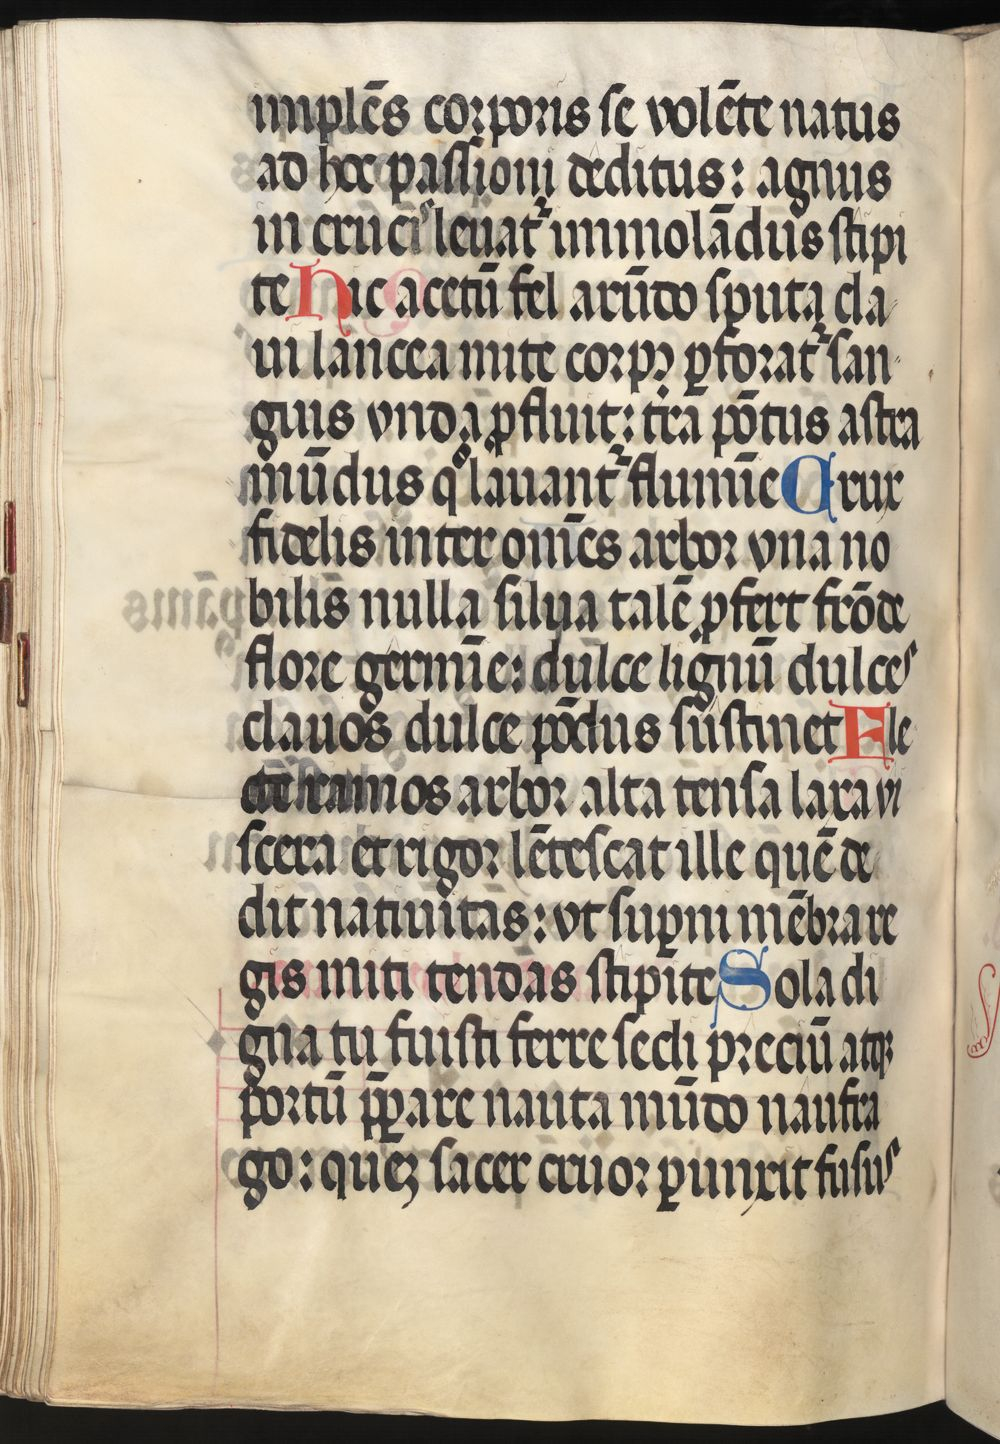 implēs corporis se volēte natus
ad hoc passioni deditus: agnus
in cruciˢ leuat᷑ immolādus stipi
te Hic acetū fel arūdo sputa cla
ui lancea mite corpꝰ ꝑforat᷑ san
guis vnda ꝓfluit: trā pōtus astra
mūdus qͦ lauant᷑ flumīe Crux
fidelis inter om̄es arbor vna no
bilis nulla silua talē ꝓfert frōde
flore germīe: dulce lignū dulces
clauos dulce pōdus sustinet Fle
cte ramos arbor alta tensa laxa vi
scera et rigor lētescat ille quē de
dit natiuitas: vt suꝑni mēbra re
gis miti tendas stipite Sola di
gna tu fuisti ferre secli preciū atqꝫ
portū p̄ꝑare nauta mūdo naufra
go: queꝫ sacer cruor ꝑunxit fusus